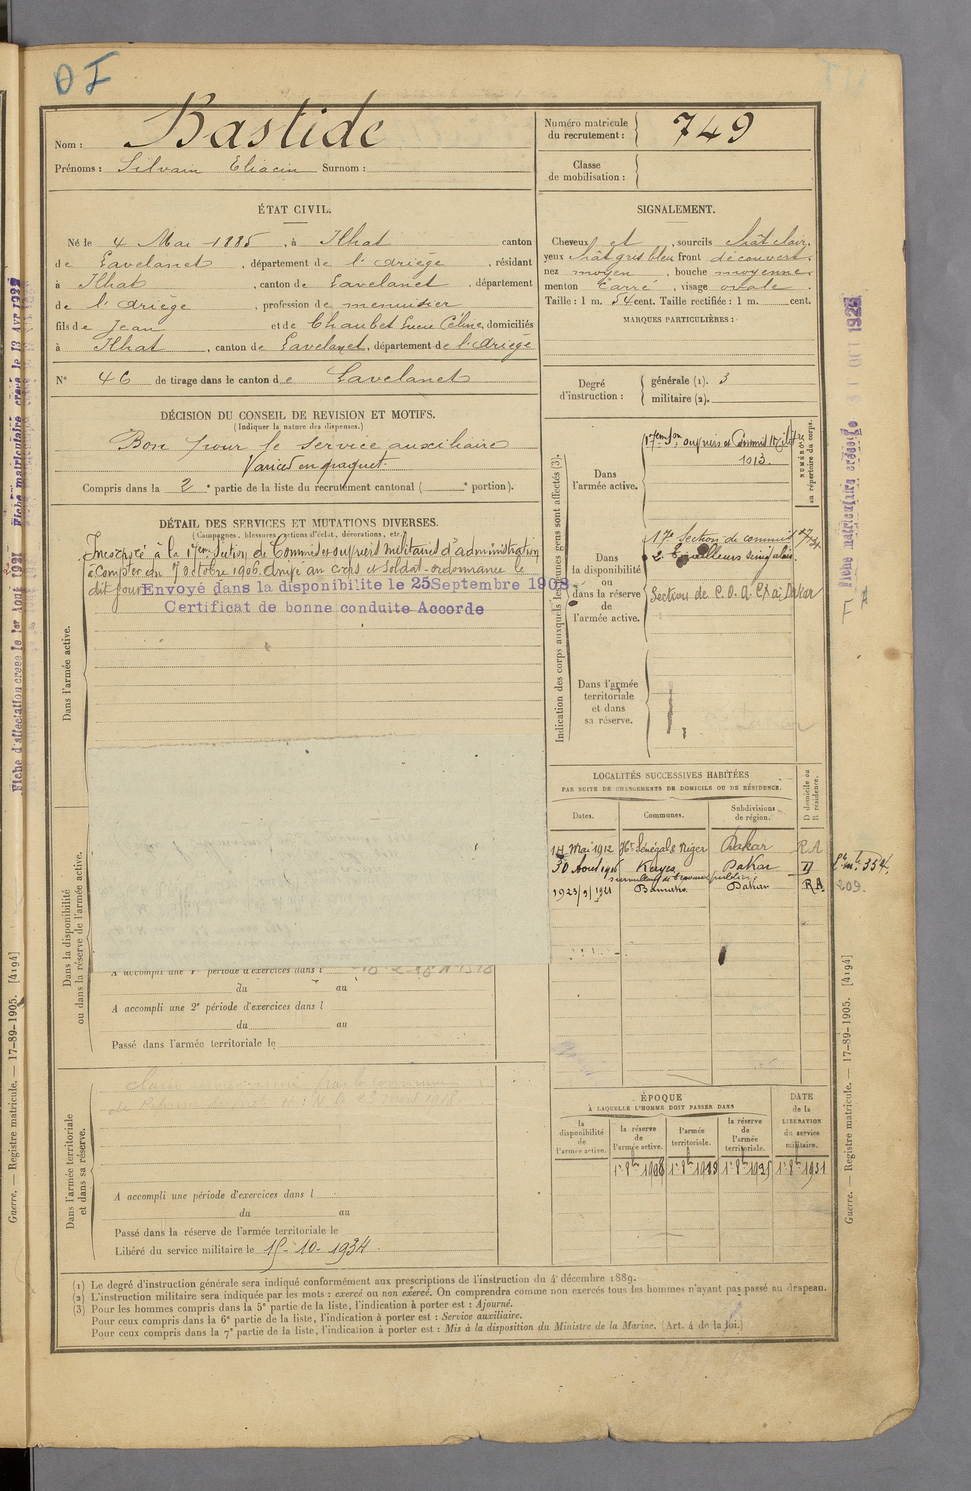 D I
Nom : Bastide
Prénoms : Silvain Eliacin Surnom :
Numéro matricule du recrutement : 749
Classe de mobilisation :
ÉTAT CIVIL.
Né le 4 Mai 1885, à Ilhat canton
de Lavelanet, département de l'Ariège, résidant
à Ilhat, canton de Lavelanet, département
de l'Ariège, profession de menuisier
fils de Jean et de Chaubet Céline, domiciliés
à Ilhat, canton de Lavelanet, département de l'Ariège
N° 46 de tirage dans le canton de Lavelanet
SIGNALEMENT.
Cheveux et, sourcils chât clair,
yeux chât gris bleu front découvert,
nez moyen, bouche moyenne
menton Carré, visage ovale.
Taille : 1 m. 54 cent. Taille rectifiée : 1 m. cent.
MARQUES PARTICULIÈRES :
Degré d'instruction : générale (1). 3
militaire (2).
DÉCISION DU CONSEIL DE REVISION ET MOTIFS.
(Indiquer la nature des dispenses.)
Bon pour le service auxiliaire
Varices en paquet.
Compris dans la 2e partie de la liste du recrutement cantonal ( e portion).
DÉTAIL DES SERVICES ET MUTATIONS DIVERSES.
(Campagnes, blessures, actions d'éclat, décorations, etc.)
Incorporé à la 17eme Section de Commis et ouvriers militaires d'administration
à compter du 7 octobre 1906. Arrivé au corps et Soldat-ordonnance le
dit jour.
Envoyé dans la disponibilité le 25 Septembre 1908
Certificat de bonne conduite Accordé
Dans l'armée active.
Indication des corps auxquels les jeunes gens sont affectés (3).
NUMÉROS au répertoire du corps.
Dans l'armée active.
1913.
Dans la disponibilité ou dans la réserve de l'armée active.
17e Section de commis
2e Tirailleurs sénégalais
Section de C.O.A. à Dakar
Dans l'armée territoriale et dans sa réserve.
LOCALITÉS SUCCESSIVES HABITÉES
PAR SUITE DE CHANGEMENTS DE DOMICILE OU DE RÉSIDENCE.
Dates. Communes. Subdivisions de région. D domicile ou R résidence.
14 Mai 1912 Ht Sénégal & Niger Dakar R A
30 Août Kayes Dakar D
Bamako Dakar R A
209.
Dans la disponibilité ou dans la réserve de l'armée active.
A accompli une 1e période d'exercices dans l
du au
A accompli une 2e période d'exercices dans l
du au
Passé dans l'armée territoriale le
Dans l'armée territoriale et dans sa réserve.
A accompli une période d'exercices dans l
du au
Passé dans la réserve de l'armée territoriale le
Libéré du service militaire le 15-10-1934.
ÉPOQUE
À LAQUELLE L'HOMME DOIT PASSER DANS
la disponibilité de l'armée active. la réserve de l'armée active. l'armée territoriale. la réserve de l'armée territoriale. DATE de la LIBÉRATION du service militaire.
(1) Le degré d'instruction générale sera indiqué conformément aux prescriptions de l'instruction du 4 décembre 1889.
(2) L'instruction militaire sera indiquée par les mots : exercé ou non exercé. On comprendra comme non exercés tous les hommes n'ayant pas passé au drapeau.
(3) Pour les hommes compris dans la 5e partie de la liste, l'indication à porter est : Ajourné.
Pour ceux compris dans la 6e partie de la liste, l'indication à porter est : Service auxiliaire.
Pour ceux compris dans la 7e partie de la liste, l'indication à porter est : Mis à la disposition du Ministre de la Marine. (Art. 4 de la loi.)
Guerre. — Registre matricule. — 17-89-1905. [4194]
Guerre. — Registre matricule. — 17-89-1905. [4194]